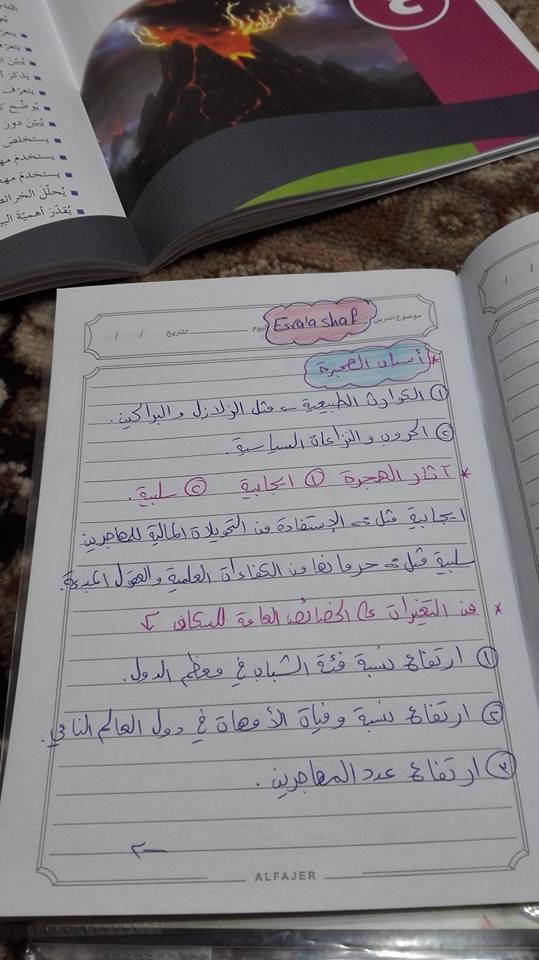 يُبيّن
يذكر
يتعرّف
يوضّح
يُبيّن دور
يستخلص
يستخدم مه
يستخدم مه
يُحلّل الخرائط
يُقدّر أهميّة
موضوع الدرس Esra'a shaf اليوم التاريخ / /
* أسباب الهجرة
① الكوارث الطبيعية ← مثل الزلازل والبراكين.
② الحروب والنزاعات السياسية.
* آثار الهجرة ① ايجابية ② سلبية.
ايجابية مثل ← الإستفادة من التحويلات المالية للمهاجرين
سلبية مثل ← حرمانها من الكفاءات العلمية والعقول المبدعة.
* من التغيرات على الخصائص العامة للسكان
① ارتفاع نسبة فئة الشباب في معظم الدول.
② ارتفاع نسبة وفيات الأمهات في دول العالم النامي.
③ ارتفاع عدد المهاجرين.
ALFAJER